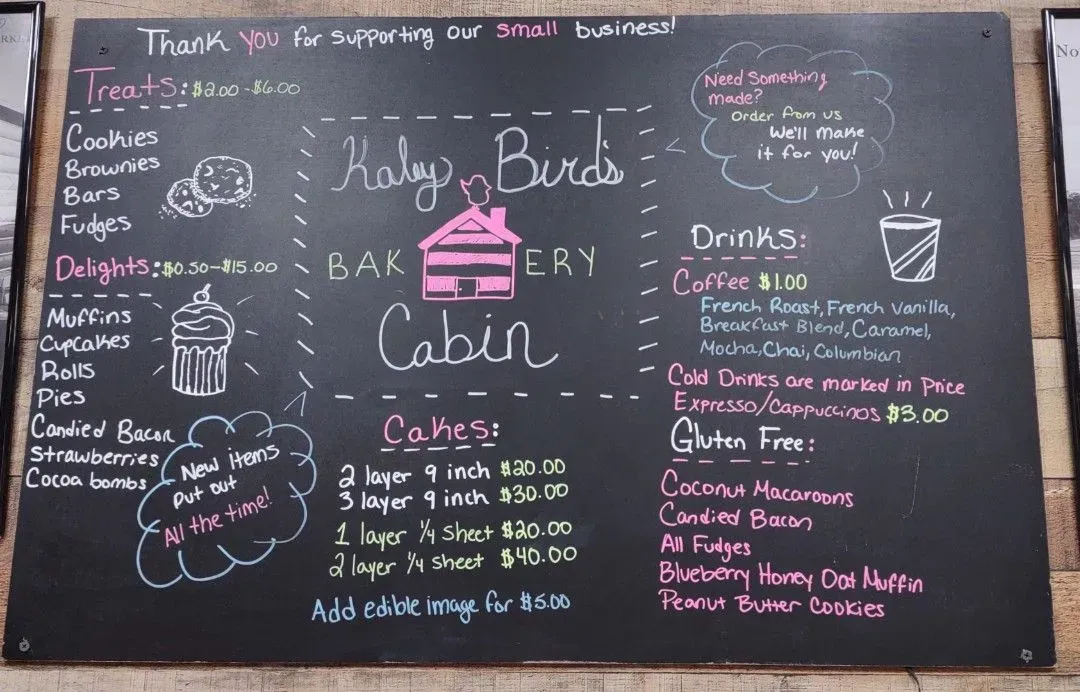 Thank You for supporting our small business!
Treats: $2.00 - $6.00
Cookies
Brownies
Bars
Fudges
Delights: $0.50-$15.00
Muffins
Cupcakes
Rolls
Pies
Candied Bacon
Strawberries
Cocoa bombs
New items
put out
All the time!
Kaley Bird's
BAKERY
Cabin
Cakes:
2 layer 9 inch $20.00
3 layer 9 inch $30.00
1 layer 1/4 sheet $20.00
2 layer 1/4 sheet $40.00
Add edible image for $5.00
Need Something
made?
Order from us
We'll make
it for you!
Drinks:
Coffee $1.00
French Roast, French Vanilla,
Breakfast Blend, Caramel,
Mocha, Chai, Columbian
Cold Drinks are marked in Price
Expresso/Cappuccinos $3.00
Gluten Free:
Coconut Macaroons
Candied Bacon
All Fudges
Blueberry Honey Oat Muffin
Peanut Butter Cookies